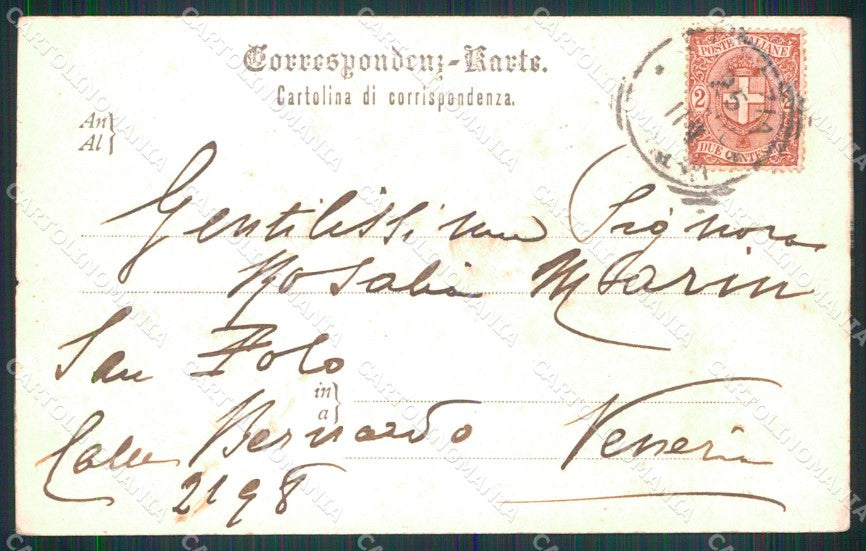 Correspondenz-Karte.
Cartolina di corrispondenza.
An
Al
POSTE ITALIANE
2 2
DUE CENTESIMI
Gentilissima Signora
Rosalia Marin
San Polo
in
a
Calle Bernardo Venezia
2198
CARTOLINOMANIA